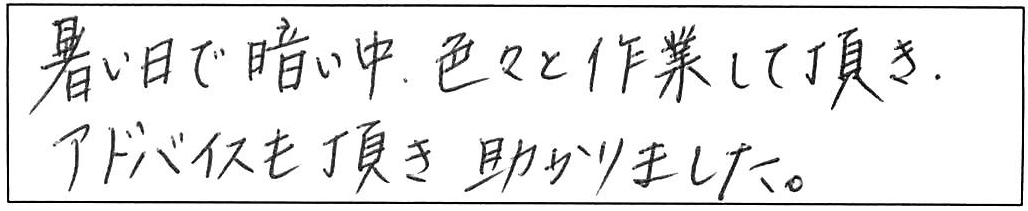 暑い日で暗い中、色々と作業して頂き、
アドバイスも頂き 助かりました。